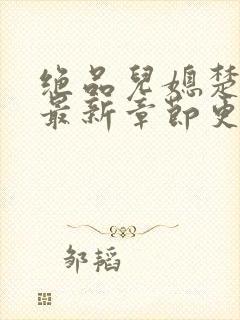 绝品儿媳楚
最新章节更
邹韬